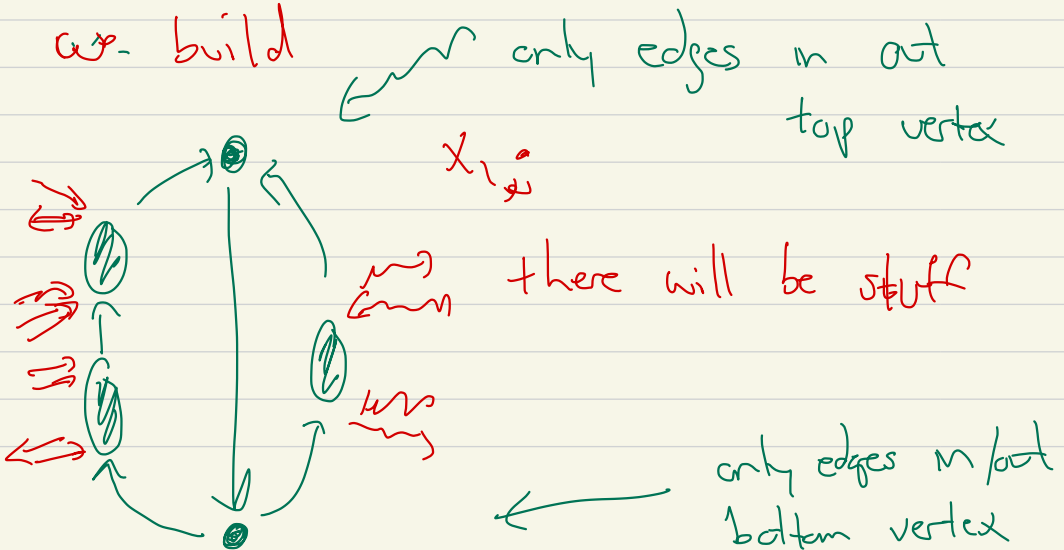 build
only edges in out
top vertex
X₁,
there will be stuff
only edges in/out
bottom vertex